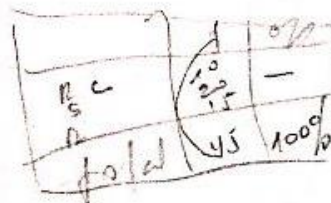 %
R C 10 —
S 20
R 15
total 45 100%